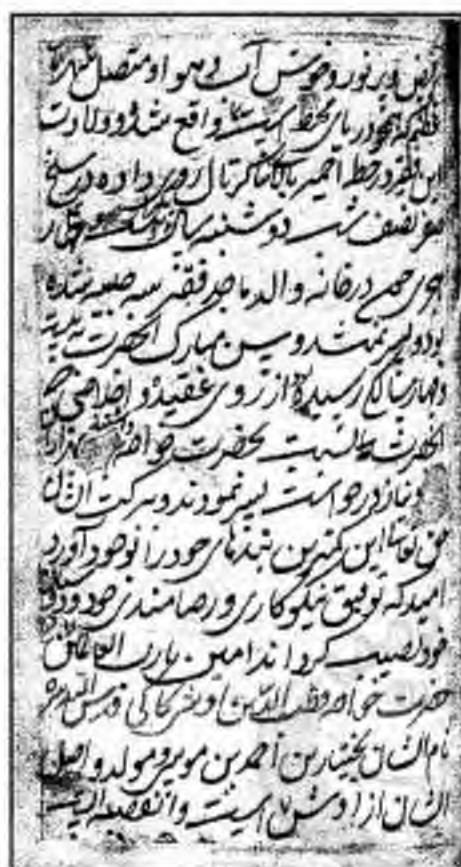 فیض و پر نور و خوش آب و هوا و متصل
عظیم که همچو دریای محیط است واقع شده و ولادت
این فقیر در خطه اجمیر بالای ساگر تال روی داده در سلخ
صفر نصف شب دوشنبه سال
هجری چون در خانه والد ماجد فقیر سه صبیه شده
بود و پسر نمیشد و سن مبارک آنحضرت به بیست
و چهار سالگی رسیده از روی عقیده و اخلاصی که
آنحضرت را نسبت بحضرت خواجه داشتند بهزاران
و نیاز درخواست پسر نمودند و ببرکت ایشان
حق تعالی این کمترین بندهای خود را بوجود آورد
امید که توفیق نیکوکاری و رضامندی خود و دوستان
خود نصیب گرداند امین یارب العالمین
حضرت خواجه قطب الدین اوشی کاکی قدس الله سره
نام ایشان بختیار بن احمد بن موسی و مولد و اصل
ایشان از اوش است و آن قصبه ایست